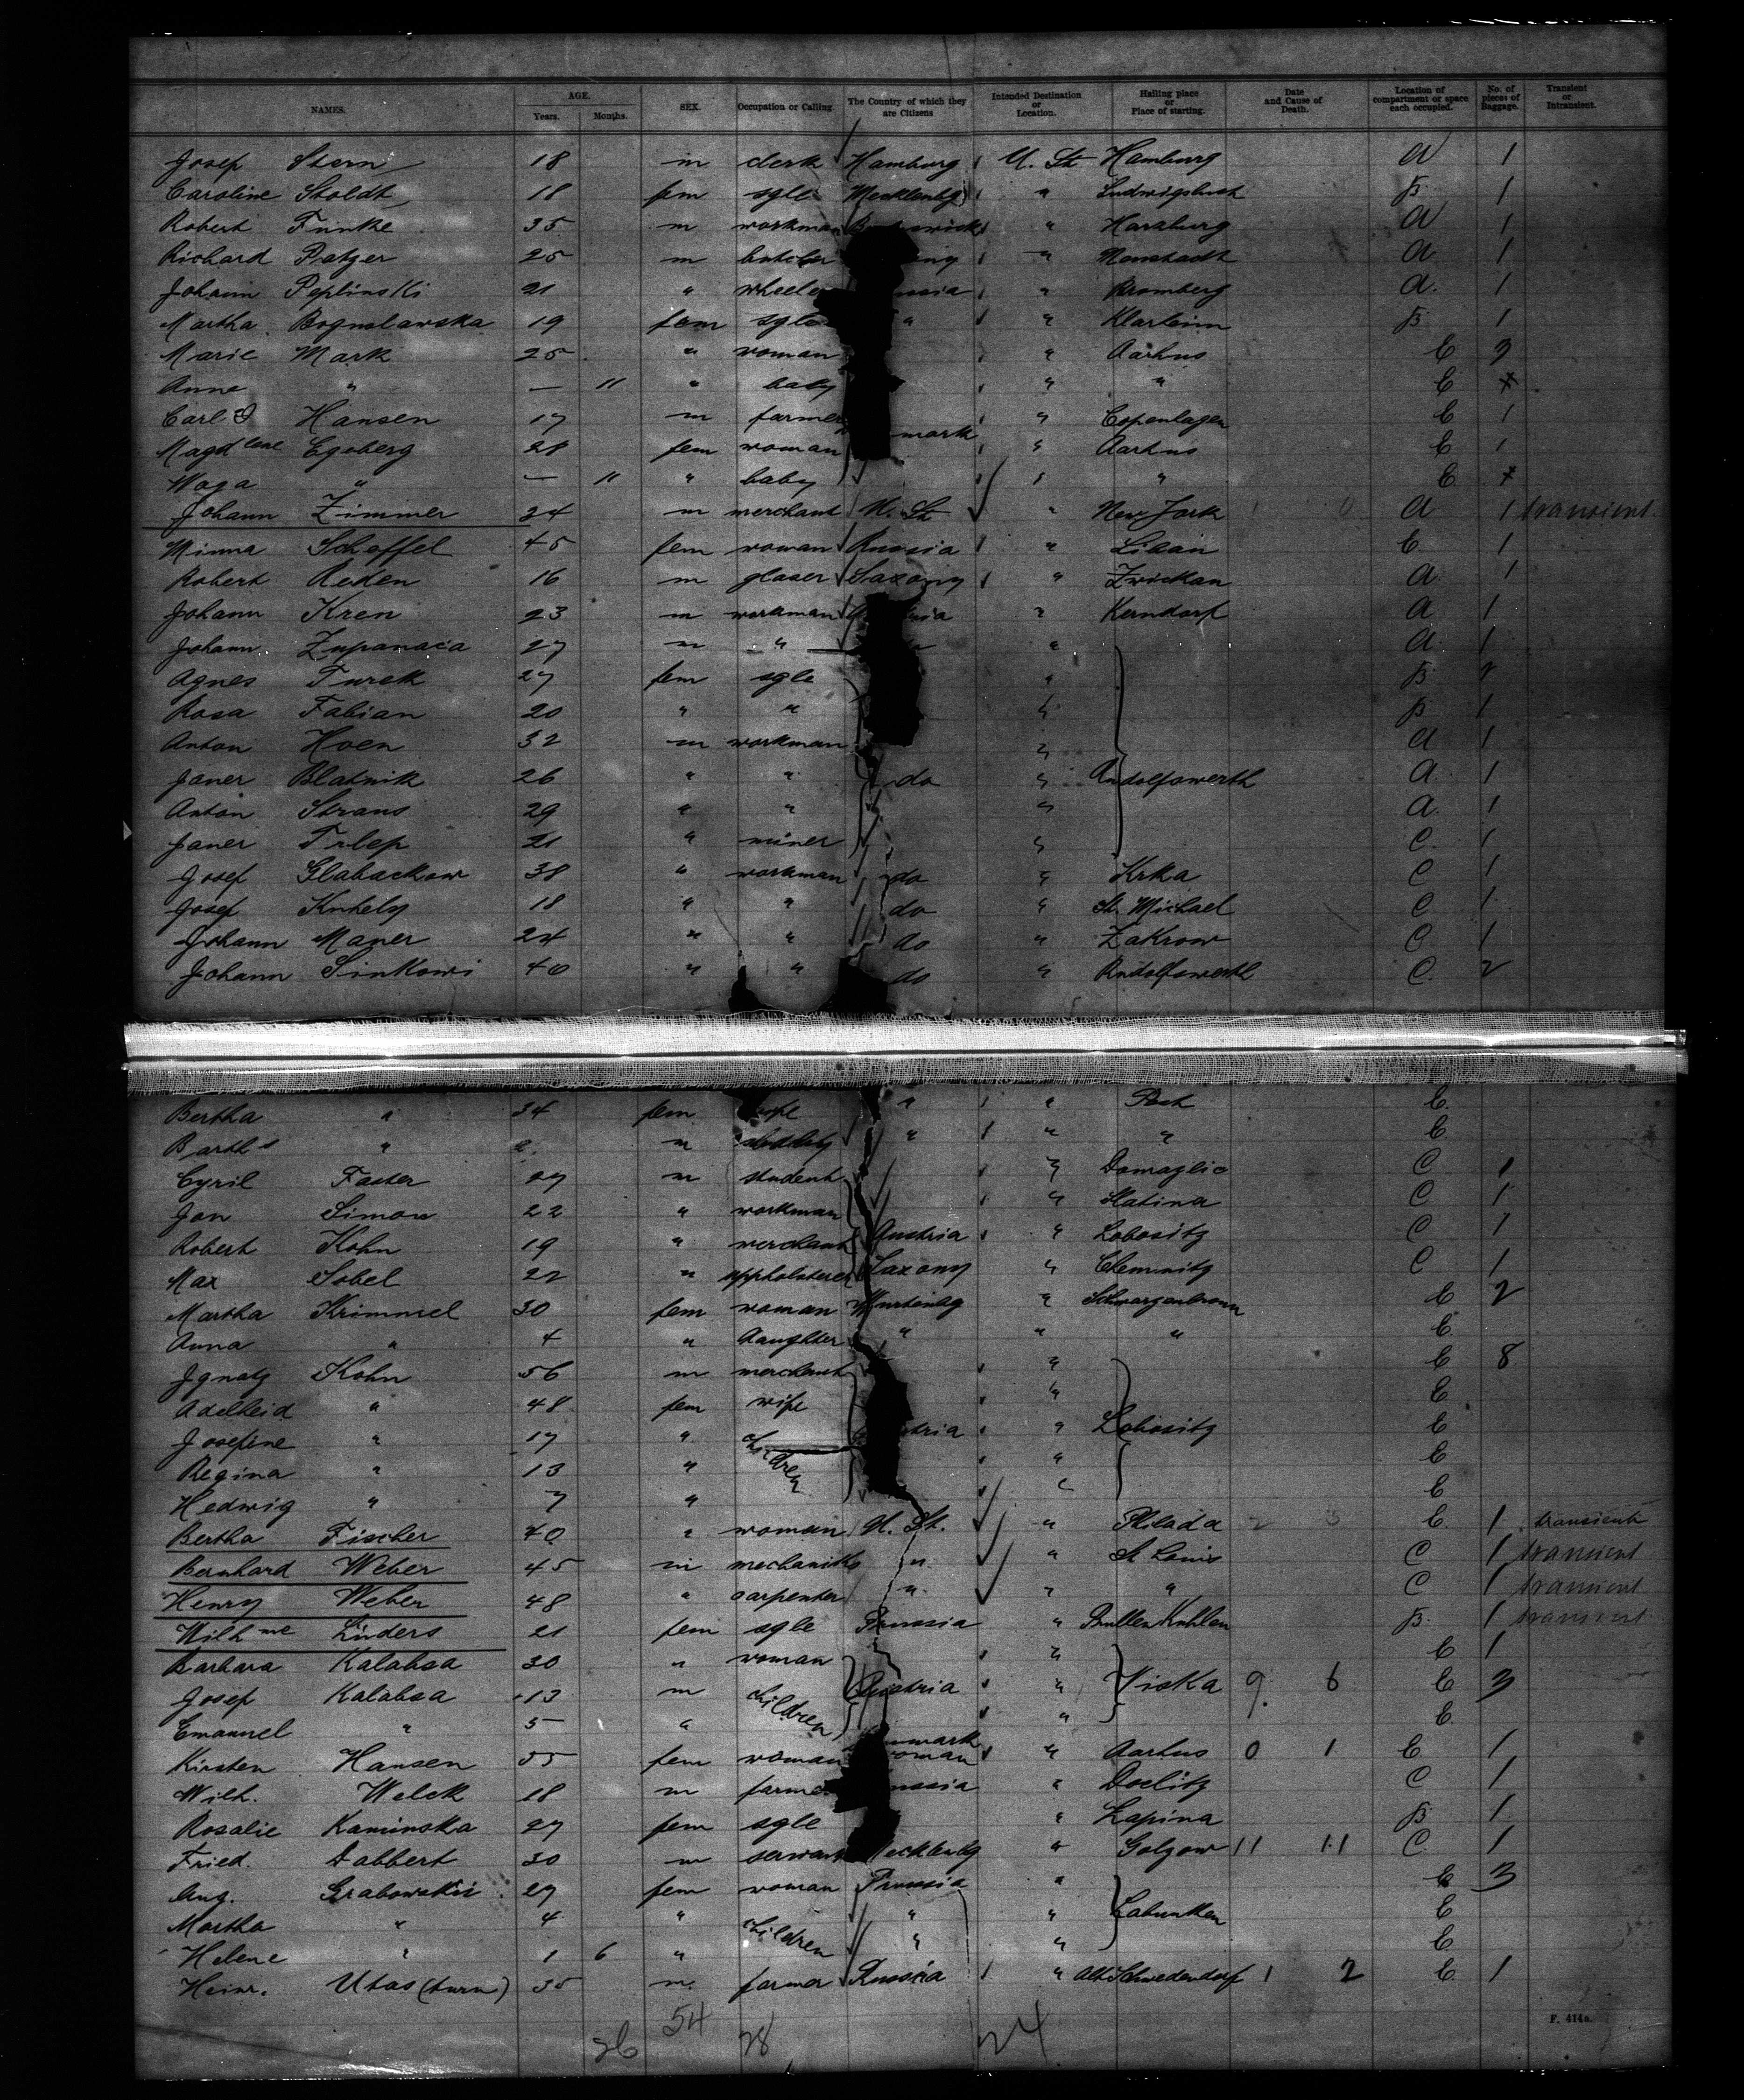 NAMES. AGE. Years. Months. SEX. Occupation or Calling. The Country of which they are Citizens Intended Destination or Location. Hailing place or Place of starting. Date and Cause of Death. Location of compartment or space each occupied. No. of pieces of Baggage. Transient or Intransient.
Josep Stern 18 m clerk Hamburg U. St Hamburg A 1
Caroline Stoldt 18 fem sgle Mecklenbg " Ludwigslust B 1
Robert Funke 35 m workman " Harzburg A 1
Richard Patzer 25 m butcher " Neustadt A 1
Johann Peplinski 21 " wheeler " Bromberg A. 1
Martha Boguslawska 19 fem sgle " " B 1
Marie Mark 25 " woman " Aarhus E 3
Anne " — 11 " baby " " E
Carl Hansen 17 m farmer " Copenhagen E 1
Magdlene Egeberg 28 fem woman mark " Aarhus E 1
Waga " — 11 " baby " " E
Johann Zimmer 24 m merchant U. St " New York A 1 transient
Minna Scheffel 45 fem woman Russia " Libau E 1
Robert Reden 16 m glaser Saxony " Zwickau A 1
Johann Kren 23 m workman " Kerndorf A 1
Johann Zupancica 27 m " " A 1
Agnes Turek 27 fem sgle " B
Rosa Fabian 20 " " " B 1
Anton Hoen 32 m workman " A 1
Janer Blatnik 26 " " do " Rudolfswerth A 1
Anton Straus 29 " " " A. 1
Janer Trlep 21 " miner " C. 1
Josef Glabackow 38 " workman do " Krka C 1
Josef Knhely 18 " " do " St. Michael C 1
Johann Maner 24 " " do " Zakrow C 1
Johann Sinkowi 40 " " do " Rudolfswerth C. 2
Bertha " 34 fem wife " " Pest E.
" m " " " E
Cyril Faster 27 m student " Domazlic C 1
Jan Simon 22 " workman " Slatina C 1
Robert Kohn 19 " merchant Austria " Lobositz C 1
Max Sobel 22 " uppholsterer Saxony " Chemnitz C 1
Martha Krimmel 30 fem woman Wurtenbg " Schwarzenbronn E 2
Anna " 4 " daughter " " " E
Ignatz Kohn 56 m merchant " E 8
Adelheid " 48 fem wife " E
Josefine " 17 " children " Lobositz E
Regina " 13 " " E
Hedwig " 7 " E
Bertha Fischer 40 " woman U. St. " Philada 2 3 E. 1 transient
Bernhard Weber 45 m mechanik " " St Louis C 1 transient
Henry Weber 48 " carpenter " " " C 1 transient
Wilhme Lüders 21 fem sgle Prussia " Bullenkuhlen B. 1 transient
Barbara Kalabsa 30 " woman " E 1
Josef Kalabsa 13 m children Austria " Viska 9 6 E 3
Emanuel " 5 " " E
Kirsten Hansen 55 fem woman " Aarhus 0 1 E 1
Wilh. Welck 18 m farmer " Doelitz C 1
Rosalie Kaminska 27 fem sgle " Lapina B 1
Fried. Dabbert 30 m servant Mecklenbg " Golzow 11 11 C 1
Aug. Grabowski 27 fem woman Prussia " E 3
Martha " 4 " children " " Labunken E
Helene " 1 6 " " " E
Heinr. Utas (turn) 35 m. farmer Russia " Alt Schwedendorf 1 2 E. 1
54
26 28 24
F. 414a.